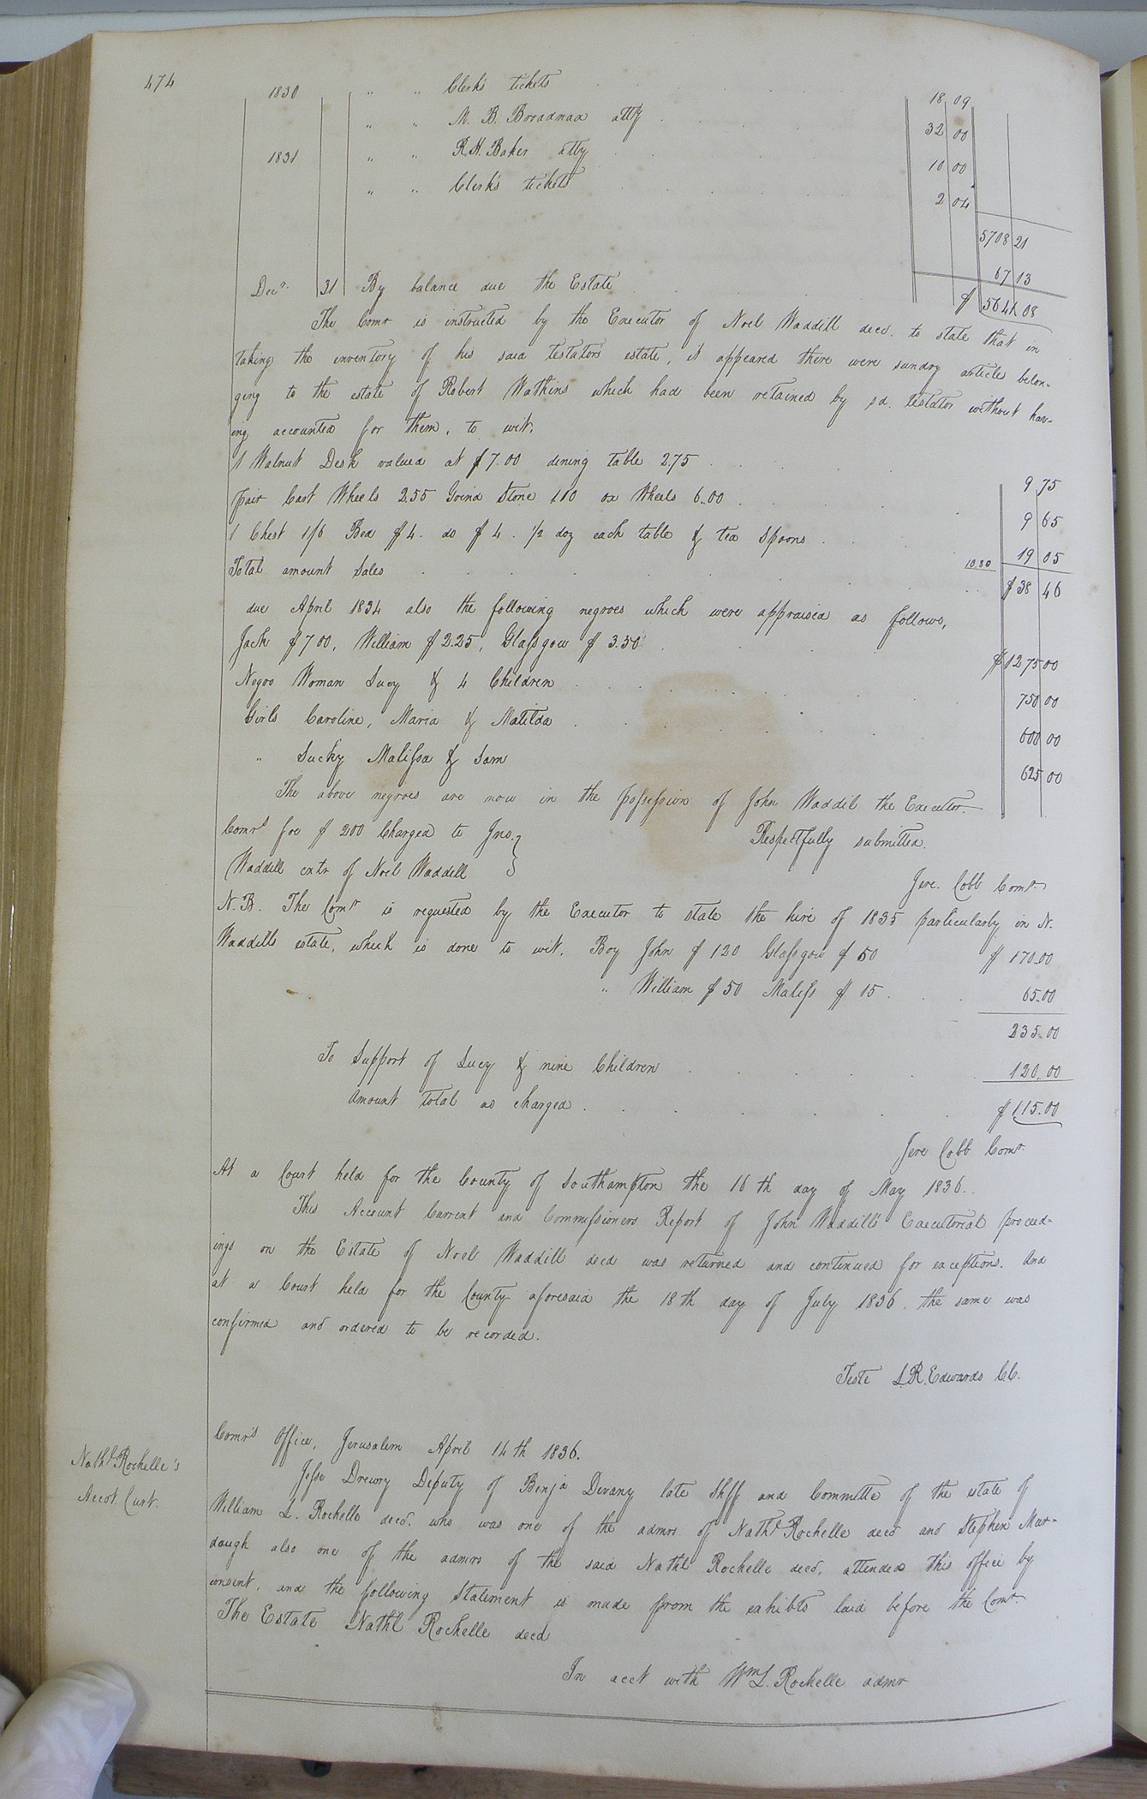 474
1830 " " Clerk's tickets . 18 09
" " M. B. Boradnax atty . 32 00
1831 " " R. H. Baker atty 10 00
" " Clerk's tickets 2 04
5708 21
67 13
Decr. 31 By balance due the Estate $ 5641.08
The Comr is instructed by the Executor of Noel Waddill decd. to state that in
taking the inventory of his said testators estate, it appeared there were sundry article belon-
ging to the estate of Robert Watkins which had been retained by sd. testator without hav-
ing accounted for them, to wit.
1 Walnut Desk valued at $7.00 dining table 2.75 . 9 75
pair Cart Wheels 2.55 Grind Stone 1.10 ox Wheels 6.00 . 9 65
1 Chest 1/6 Bed $4. do $4. 1/2 doz each table & tea Spoons . 10.80 19 05
Total amount Sales . $38 46
due April 1834 also the following negroes which were appraised as follows,
Jack $700, William $2.25, Glassgow $3.50 . $1275 00
Negro Woman Lucy & 4 Children 750 00
Girls Caroline, Maria & Matilda . 600 00
" Lucky Malissa & Sam 625 00
The above negroes are now in the possession of John Waddil the Executor
Respectfully submitted.
Comrs fee $2.00 Charged to Jno. }
Waddill extr of Noel Waddell }
Jere. Cobb Comr
N.B. The Comr is requested by the Executor to state the hire of 1835 particularly in N.
Waddills estate, which is done to wit. Boy John $120 Glassgow $50 $170.00
" William $50 Maliss $15 . 65.00
235.00
To Support of Lucy & nine Children 120.00
Amount total as charged . $115.00
Jere Cobb Comr.
At a Court held for the County of Southampton the 16th day of May 1836.
This Account Current and Commissioners Report of John Waddill's Executorial proceed-
ings on the Estate of Noel Waddill decd was returned and continued for exceptions. And
at a Court held for the County aforesaid the 18th day of July 1836. the same was
confirmed and ordered to be recorded.
Teste L. R. Edwards CC.
Nathl. Rochelle's
Accot Curt.
Comr's Office, Jerusalem April 14th 1836.
Jesse Drewry Deputy of Benja Devany late Shff and Committe of the estate of
William L. Rochelle decd. who was one of the admrs of Nathl Rochelle decd and Stephen Mur-
daugh also one of the admrs of the said Nathl Rochelle decd, attended this office by
consent, and the following Statement is made from the exhibits laid before the Comr.
The Estate Nathl Rochelle decd
In acct with Wm L. Rochelle admr